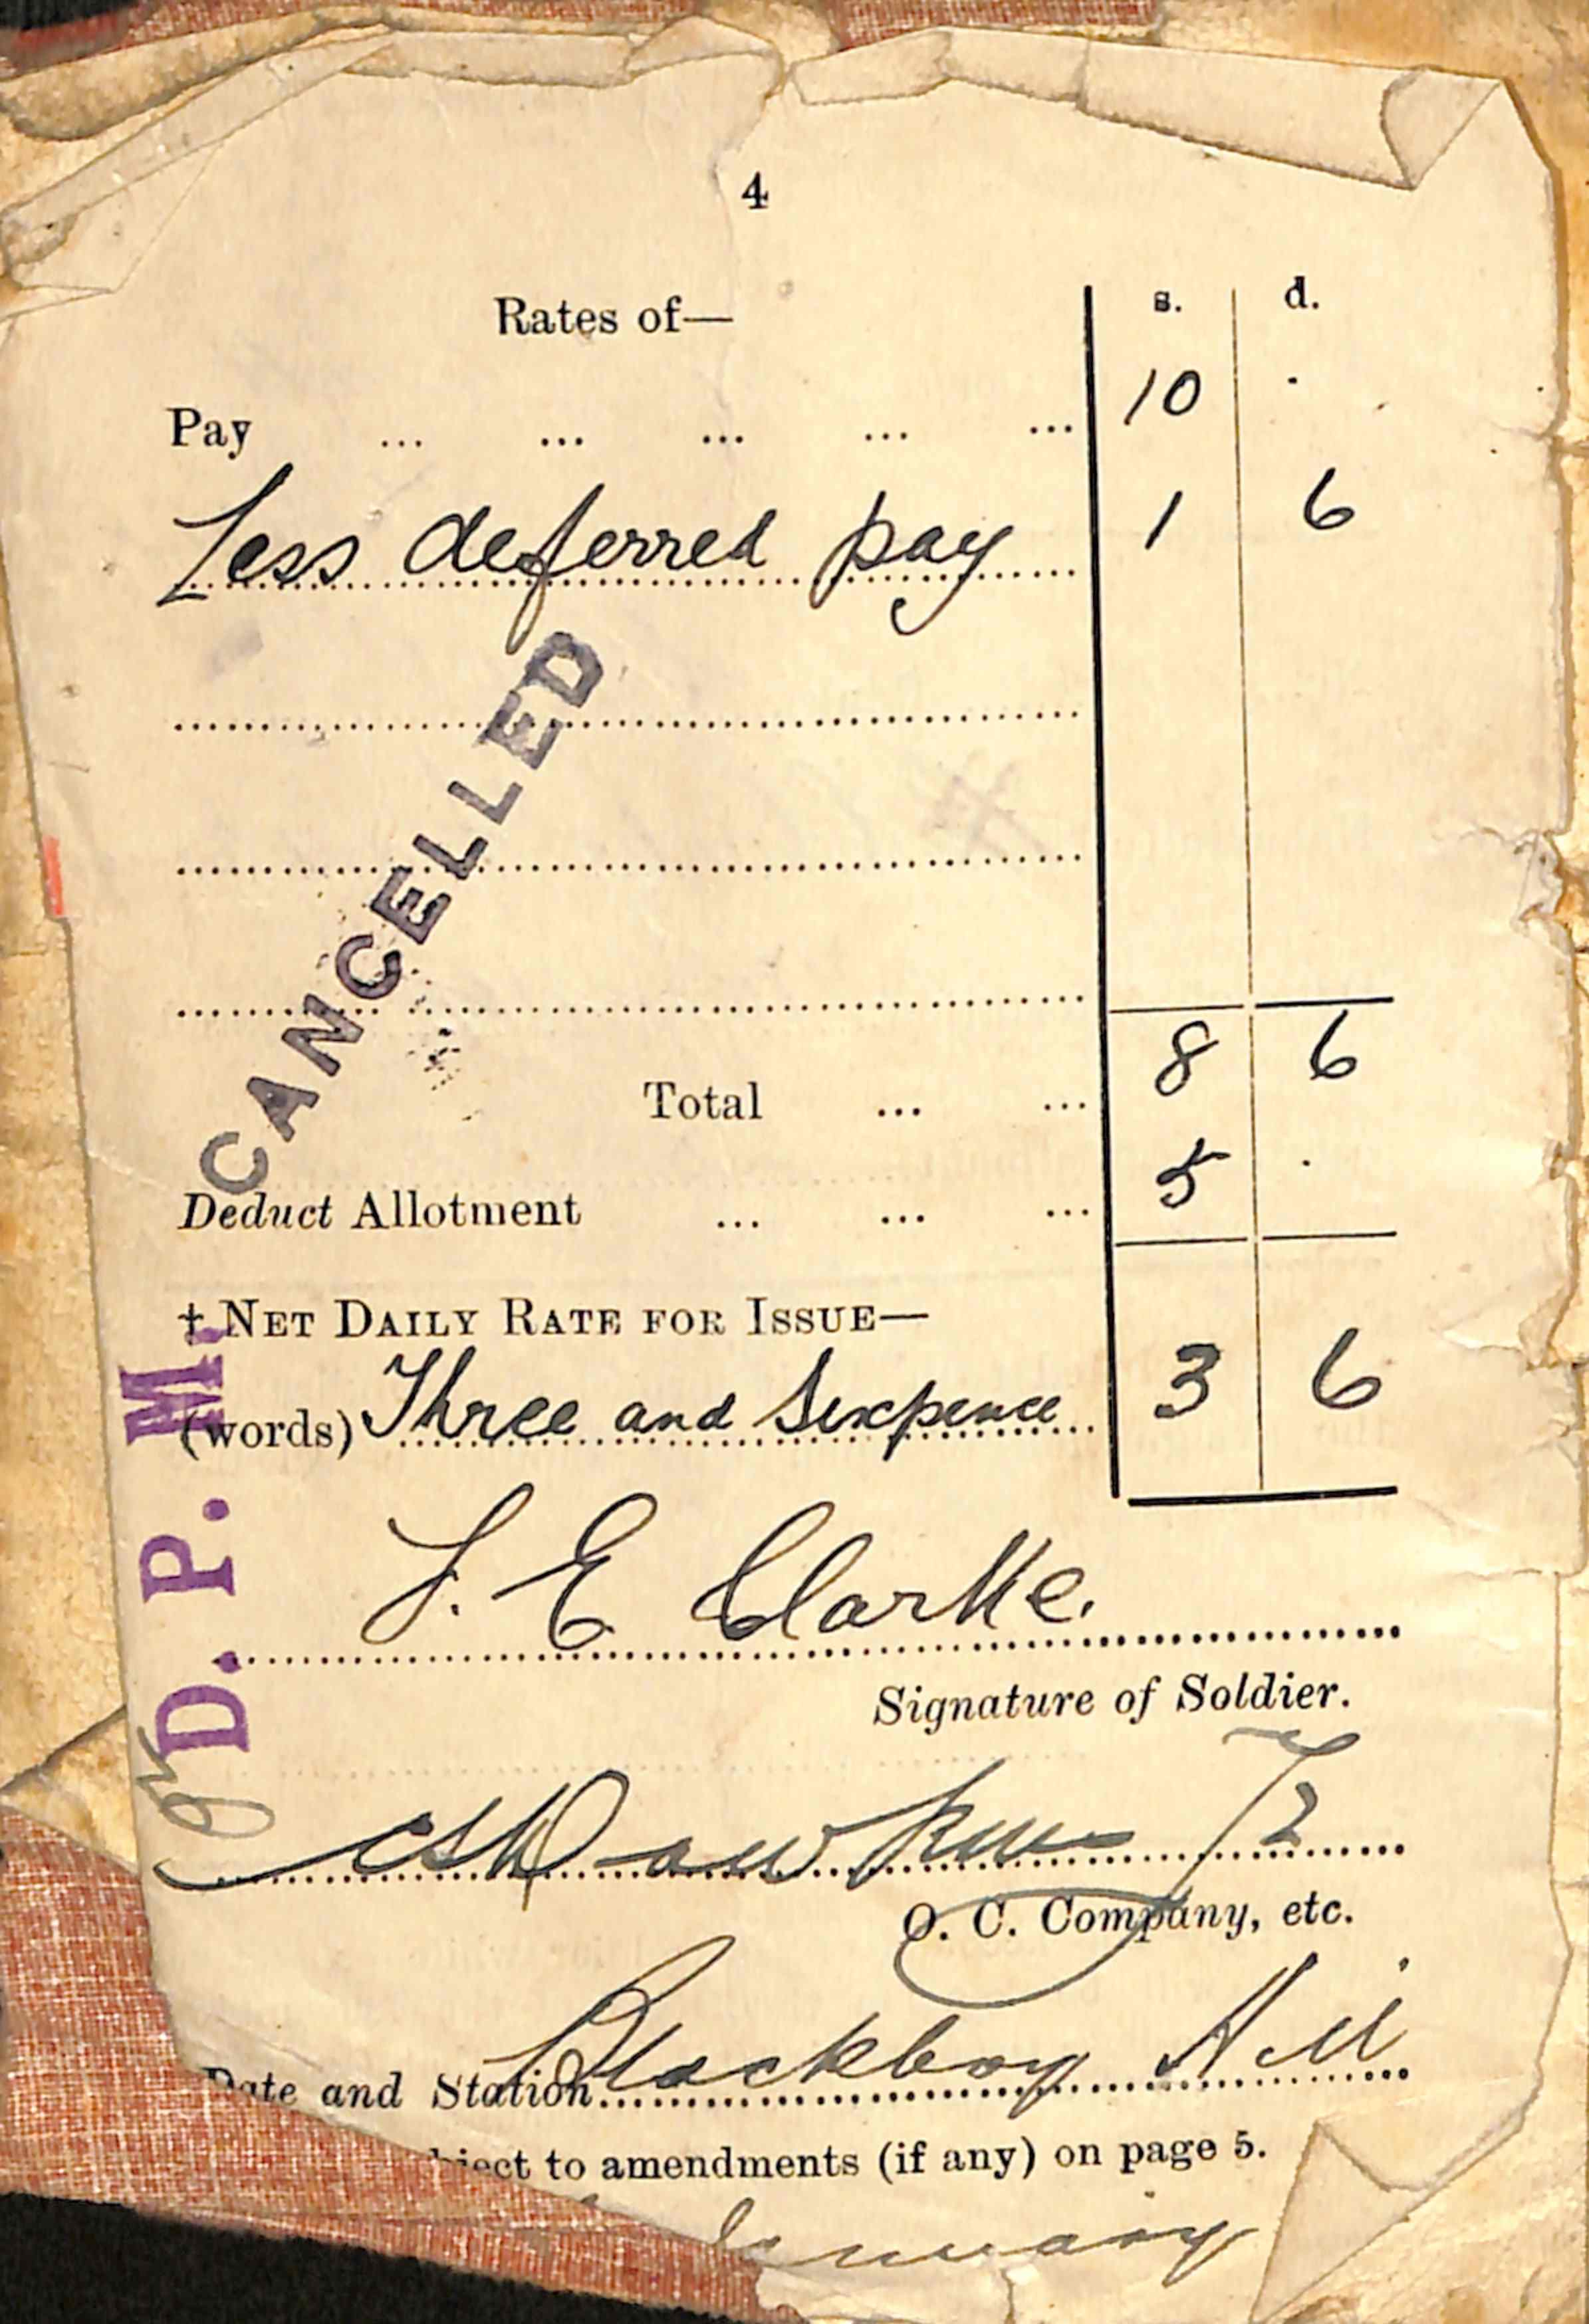 4
Rates of— s. d.
Pay ... ... ... ... ... 10 ·
Less deferred pay 1 6
CANCELLED
Total ... ... 8 6
Deduct Allotment ... ... ... 5 ·
† NET DAILY RATE FOR ISSUE—
(words) Three and Sixpence 3 6
D. P. M.
E Clarke.
Signature of Soldier.
O. C. Company, etc.
Date and Station Blackboy Hill
ject to amendments (if any) on page 5.
January